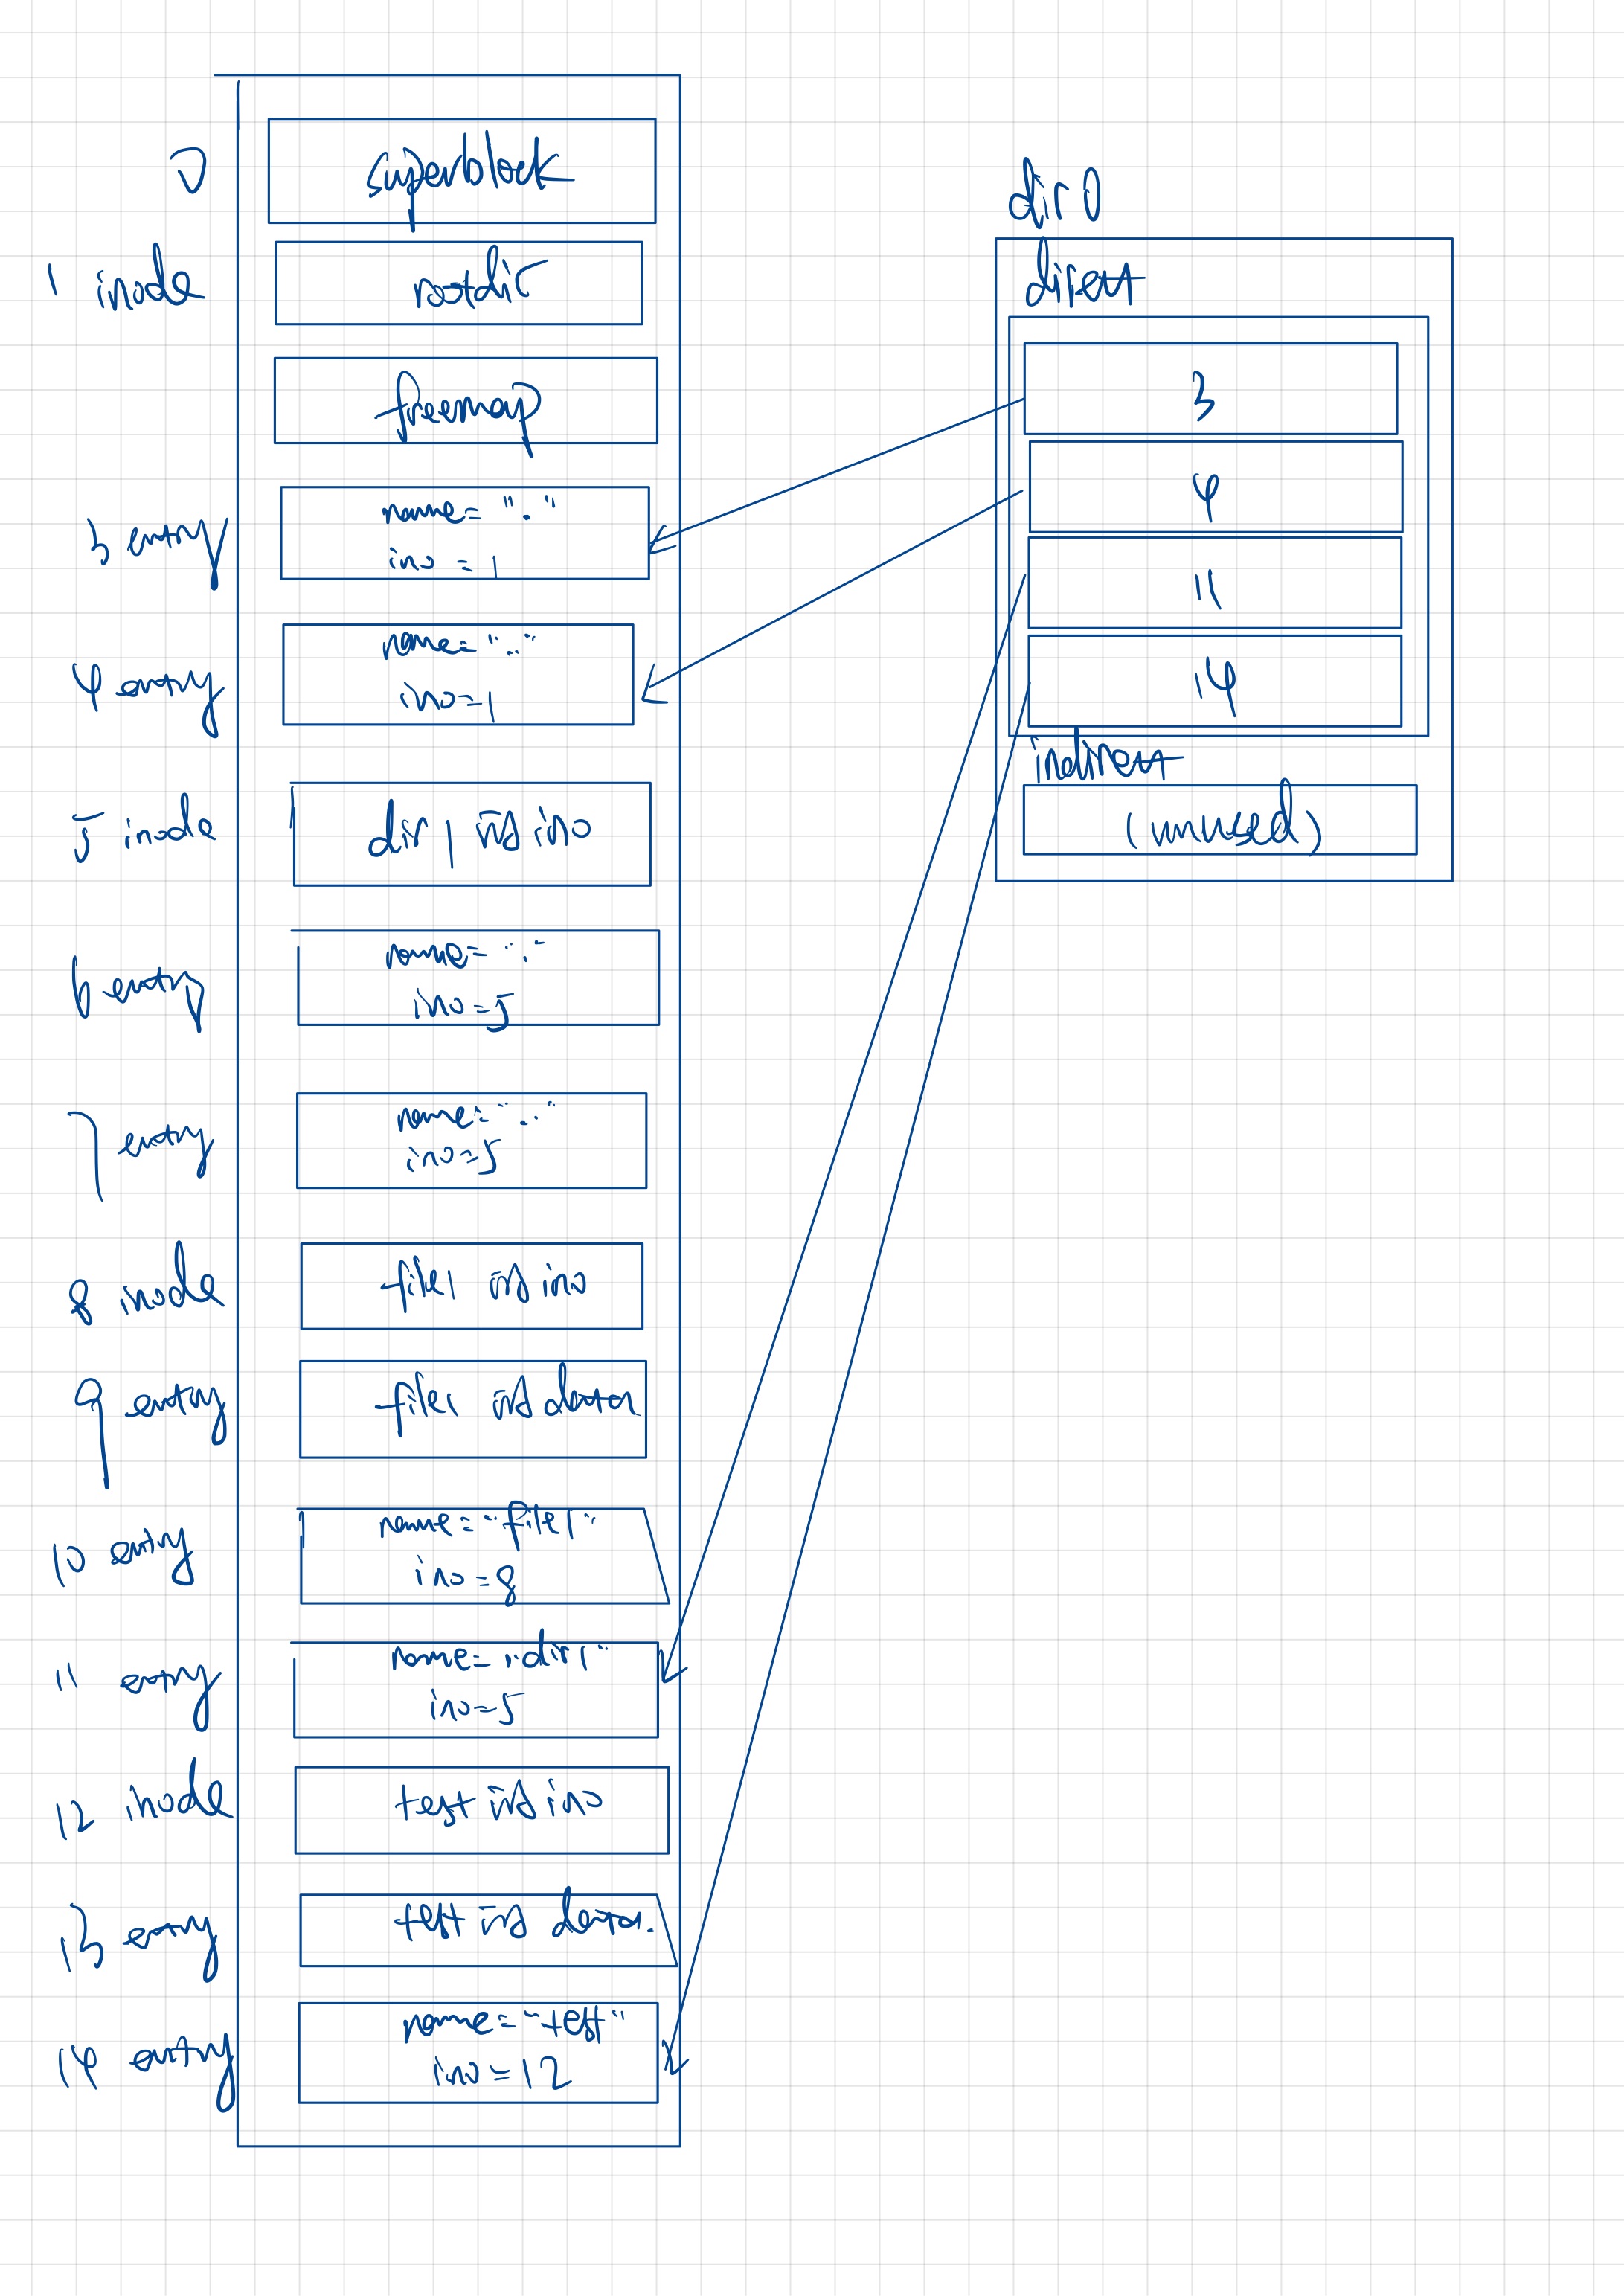 0
superblock
1 inode
rootdir
freemap
3 entry
name="."
ino = 1
4 entry
name=".."
ino=1
5 inode
dir1 的 ino
6 entry
name="."
ino=5
7 entry
name=".."
ino=5
8 inode
file1 的 ino
9 entry
file1 的 data
10 entry
name="file1"
ino=8
11 entry
name="dir1"
ino=5
12 inode
test 的 ino
13 entry
test 的 data.
14 entry
name="test"
ino=12
dir0
direct
3
4
11
14
indirect
(unused)